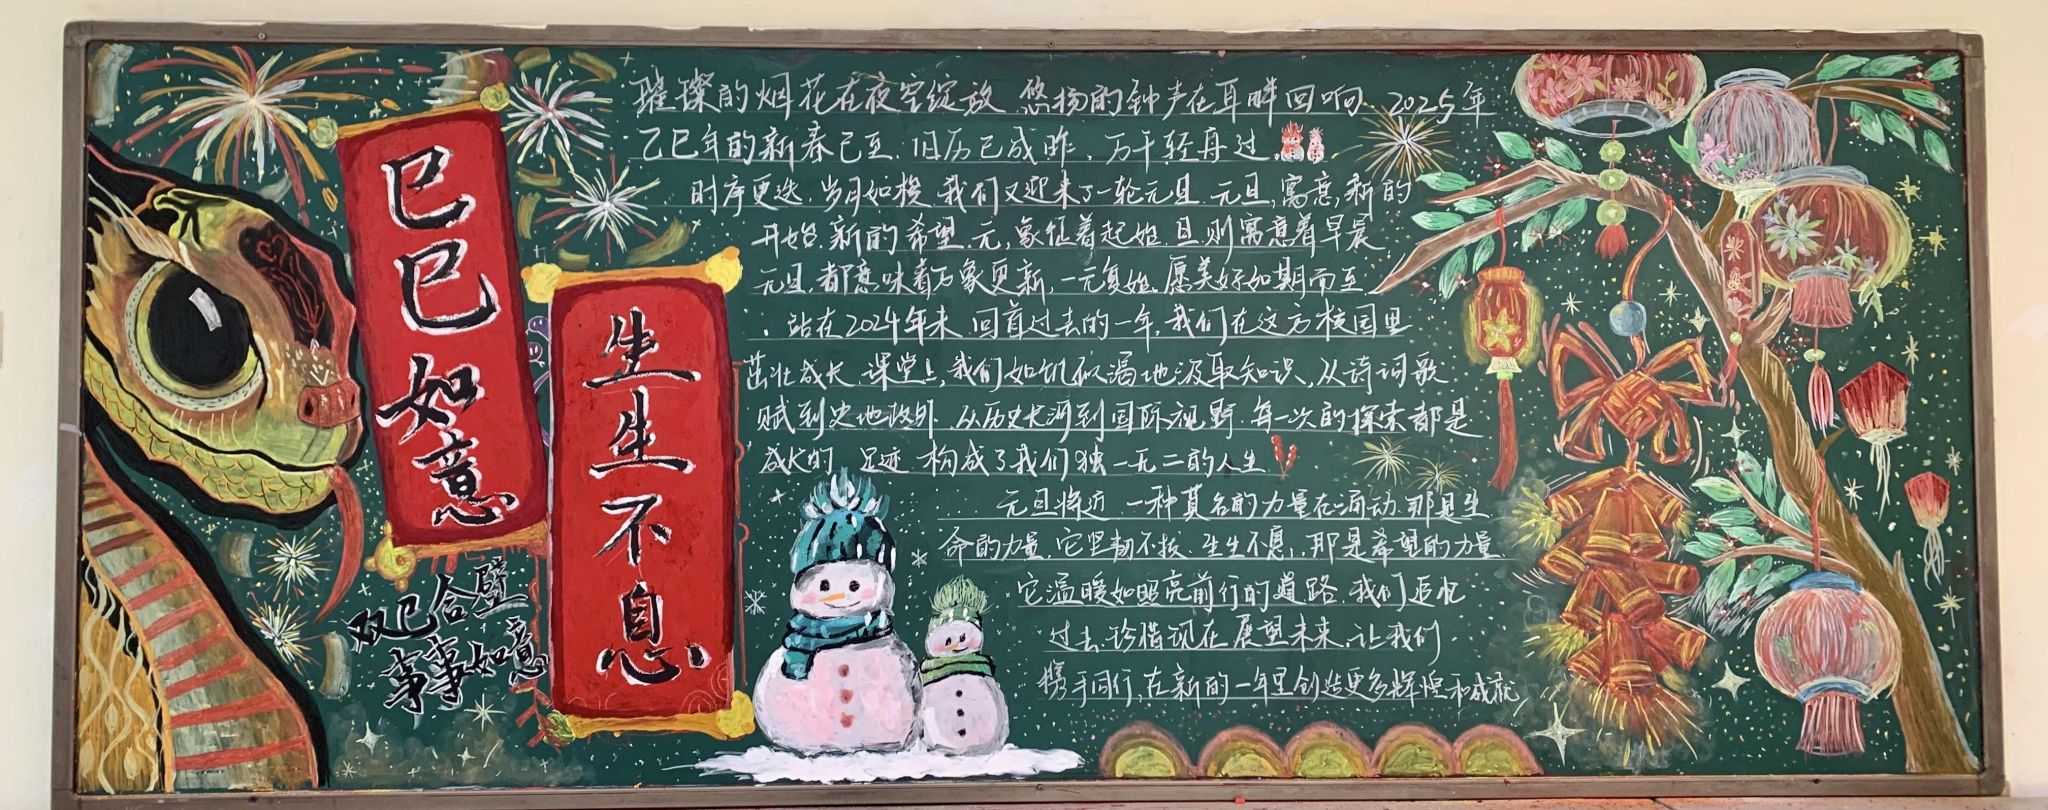 巳巳如意
生生不息
双巳合璧
事事如意
璀璨的烟花在夜空绽放 悠扬的钟声在耳畔回响 2025年
乙巳年的新春已至,旧历已成昨,万千轻舟过。
时序更迭,岁月如梭,我们又迎来了一轮元旦 元旦,寓意,新的
开始,新的希望,元,象征着起始 旦,则寓意着早晨
元旦,都意味着万象更新,一元复始。愿美好如期而至
站在2024年末,回首过去的一年,我们在这方校园里
茁壮成长,课堂上,我们如饥似渴地汲取知识,从诗词歌
赋到史地政外,从历史长河到国际视野 每一次的探索都是
成长的 足迹 构成了我们独一无二的人生
元旦将近 一种莫名的力量在涌动,那是生
命的力量,它坚韧不拔,生生不息,那是希望的力量
它温暖如照亮前行的道路 我们追忆
过去,珍惜现在,展望未来,让我们
携手同行,在新的一年里创造更多辉煌和成就